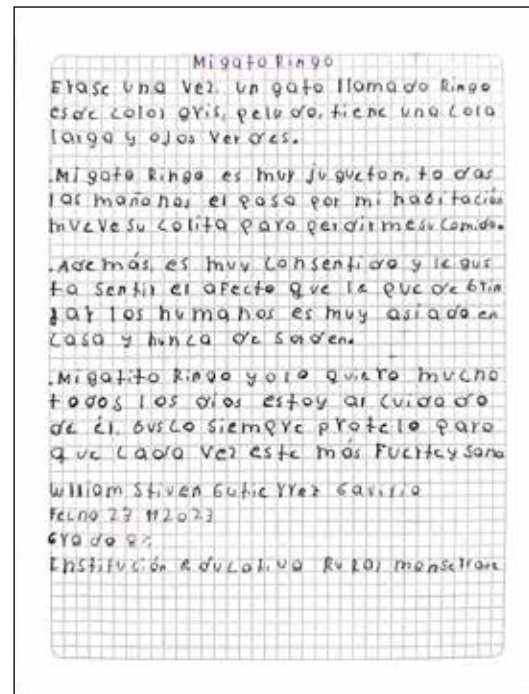 Mi gato Ringo
Erase una vez, un gato llamado Ringo
es de color gris, peludo, tiene una cola
larga y ojos verdes.
.Mi gato Ringo es muy jugueton, todas
las mañanas el pasa por mi habitación
mueve su colita para perdirme su comida.
.Además, es muy consentido y le gus
ta sentir el afecto que le puede brin
dar los humanos es muy asiado en
casa y nunca de sorden.
.Mi gatito Ringo yo lo quiero mucho
todos los dias estoy al cuidado
de él, busco siempre protelo para
que cada vez este más fuerte y sano
William Stiven Gutierrez Gaviria
Fecha 27 11 2023
Grado
Institución educativa Rural monserrate